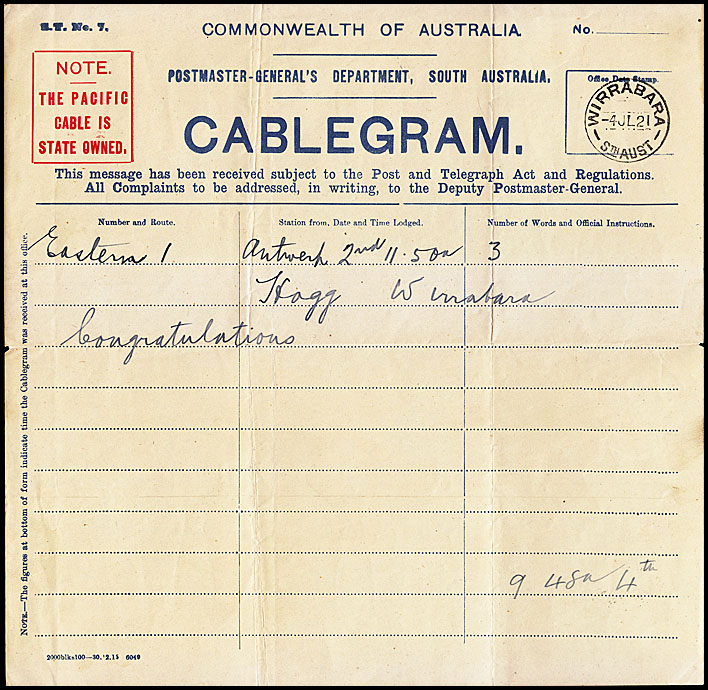 S.T. No. 7.
COMMONWEALTH OF AUSTRALIA.
No.
NOTE.
THE PACIFIC
CABLE IS
STATE OWNED.
POSTMASTER-GENERAL'S DEPARTMENT, SOUTH AUSTRALIA.
CABLEGRAM.
Office Date Stamp.
WIRRABARA
-4JL21
STH AUST
This message has been received subject to the Post and Telegraph Act and Regulations.
All Complaints to be addressed, in writing, to the Deputy Postmaster-General.
Number and Route. Station from, Date and Time Lodged. Number of Words and Official Instructions.
Eastern 1 Antwerp 2nd 11.50a 3
Hogg Wirrabara
Congratulations
9 48a 4th
NOTE.—The figures at bottom of form indicate time the Cablegram was received at this office.
2000blks100—30.'2.15 6049